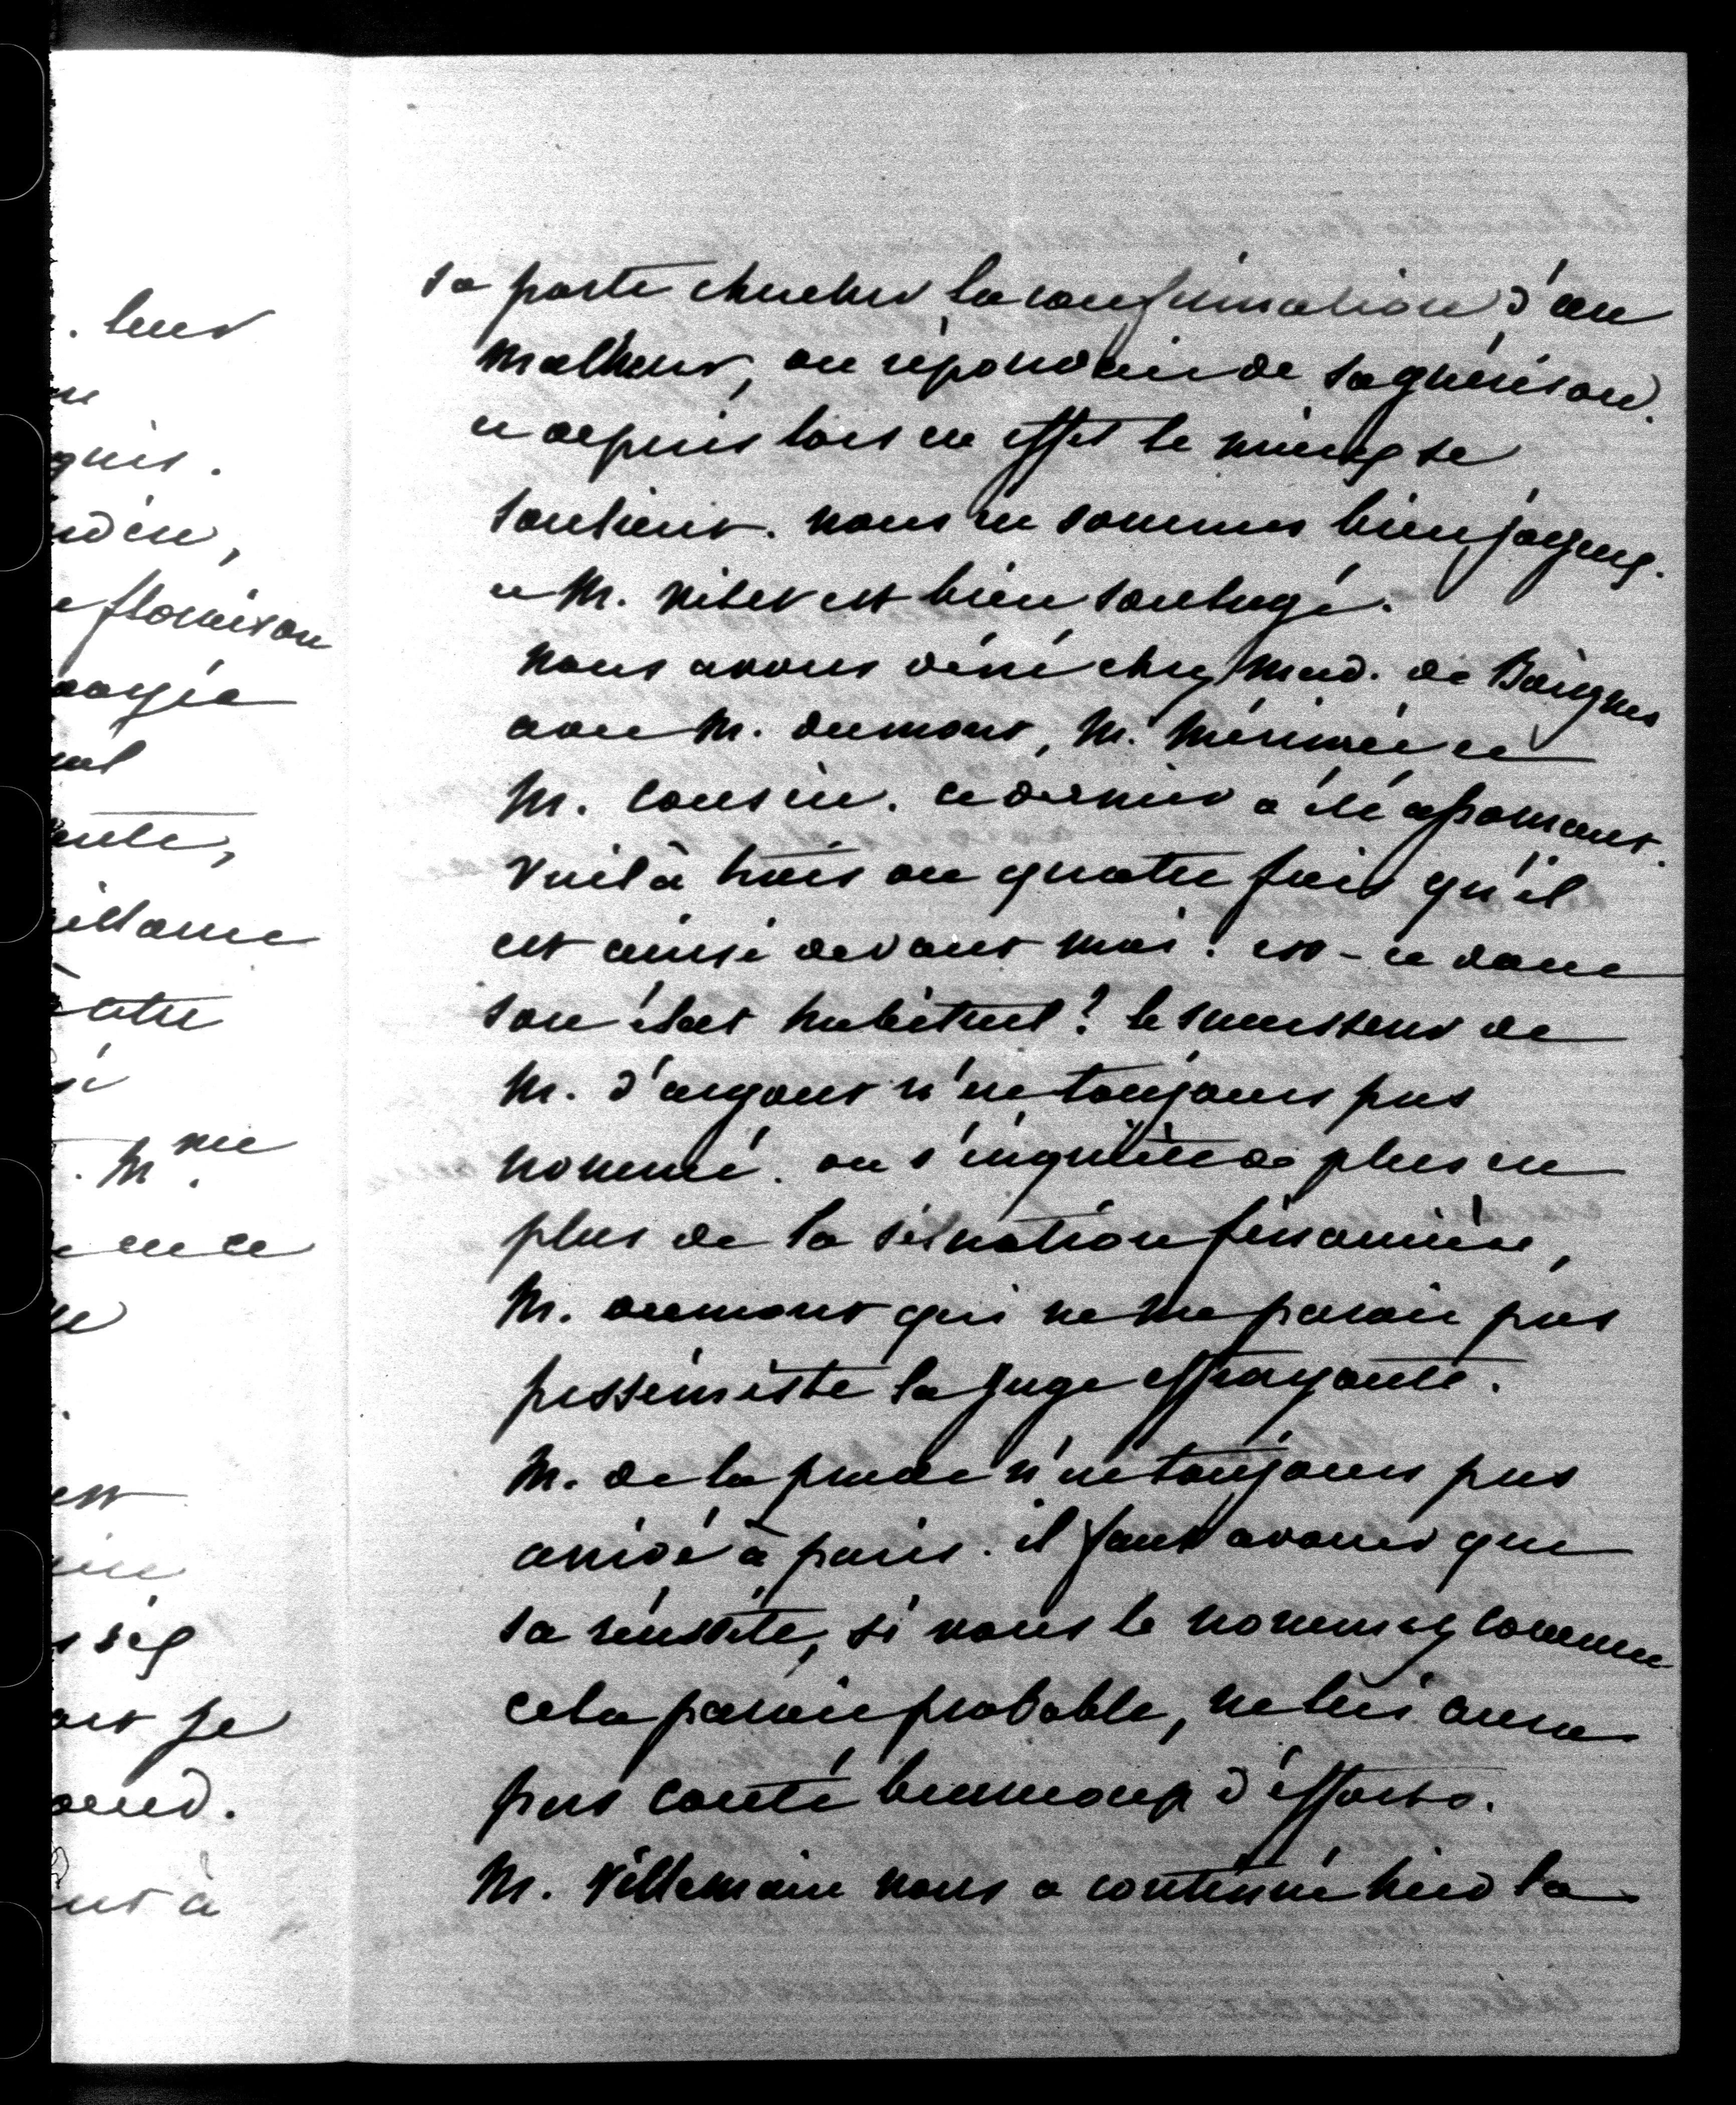 . leur
ne
quis.
ndin,
e floraison
oagie
ent
ante,
illame
atre
si
. Mme
ence
ue
est
sséz
ais je
and.
ent à
sa porte chercher la confirmation d'un
malheur, on répondait de sa guérison.
et depuis lors en effet le mieux se
soutient. nous en sommes bien joyeux.
et M. vitet est bien soulagé.
nous avons diné chez Mad. de Boigne
avec M. dumont, M. Mérimée et
M. Cousin. ce dernier a été assomant.
voilà trois ou quatre fois qu'il
est ainsi devant moi. est-ce donc
son état habituel? le successeur de
M. d'argout n'est toujours pas
nommé. on s'inquiète de plus en
plus de la situation financière,
M. dumont qui ne me parait pas
pessimiste la juge effrayante.
M. de la prade n'est toujours pas
arrivé à paris. il faut avouer que
sa réussite, si vous le nommez comme
cela parait probable, ne lui aura
pas couté beaucoup d'efforts.
M. Villemain nous a continué hier la